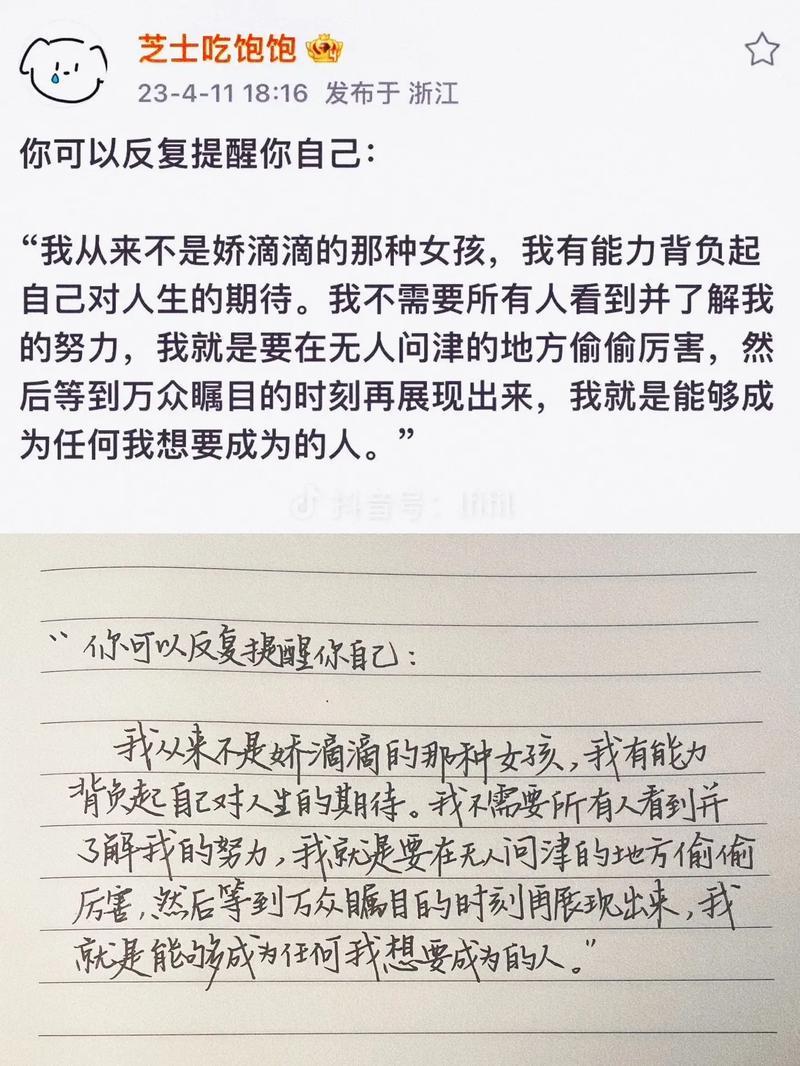 芝士吃饱饱
23-4-11 18:16 发布于 浙江
你可以反复提醒你自己：
“我从来不是娇滴滴的那种女孩，我有能力背负起
自己对人生的期待。我不需要所有人看到并了解我
的努力，我就是要在无人问津的地方偷偷厉害，然
后等到万众瞩目的时刻再展现出来，我就是能够成
为任何我想要成为的人。”
抖音号：
“你可以反复提醒你自己：
我从来不是娇滴滴的那种女孩，我有能力
背负起自己对人生的期待。我不需要所有人看到并
了解我的努力，我就是要在无人问津的地方偷偷
厉害，然后等到万众瞩目的时刻再展现出来，我
就是能够成为任何我想要成为的人。”